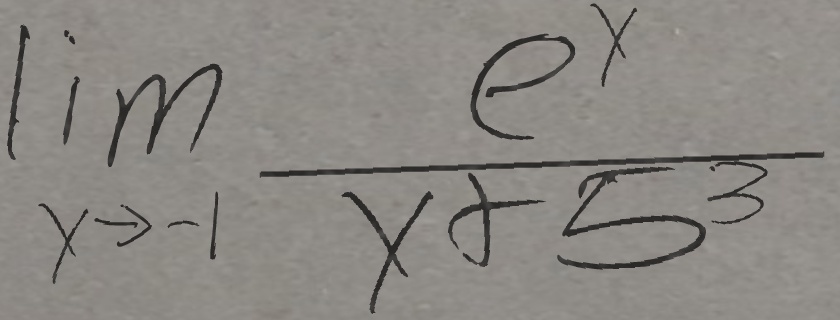 \lim_{x \to -1} \frac{e^x}{x + 5^3}